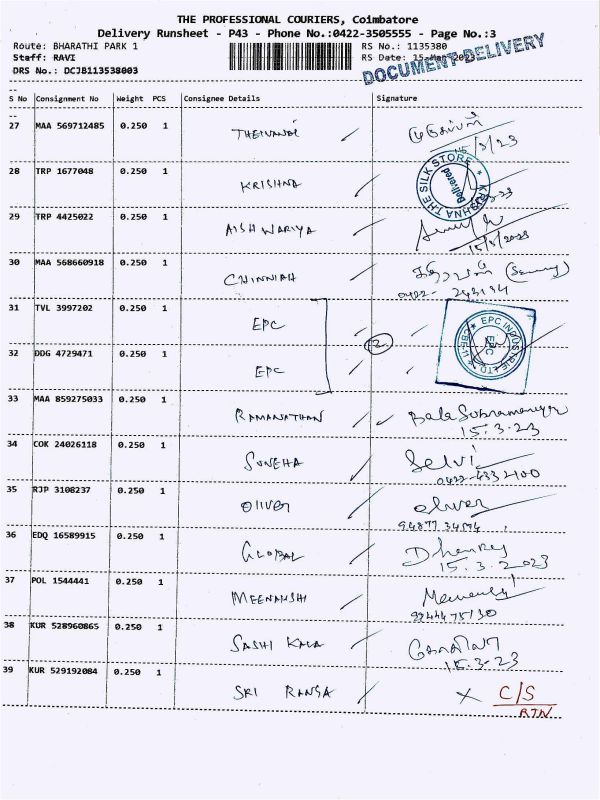 THE PROFESSIONAL COURIERS, Coimbatore
Delivery Runsheet - P43 - Phone No.:0422-3505555 - Page No.:3
Route: BHARATHI PARK 1 RS No.: 1135380
Staff: RAVI RS Date: 15-Mar-2023
DRS No.: DCJB113538003 DOCUMENT DELIVERY
S No Consignment No Weight PCS Consignee Details Signature
27 MAA 569712485 0.250 1
THEIVANAI
15/3/23
28 TRP 1677048 0.250 1
KRISHNA KRUSHNA THE SILK STORE Delivered
29 TRP 4425022 0.250 1
AISHWARIYA
15/3/2023
30 MAA 568660918 0.250 1
CHINNIAH
0422-
31 TVL 3997202 0.250 1
EPC EPC INDUSTRIE LTD CBE-11 EPC
2
32 DDG 4729471 0.250 1
EPC
33 MAA 859275033 0.250 1
RAMANATHAN Bala Subramaniyan
15.3.23
34 COK 24026118 0.250 1
SUNEHA Selvi
0422-4332400
35 RJP 3108237 0.250 1
OLIVER oliver
36 EDQ 16589915 0.250 1
GLOBAL
15.3.2023
37 POL 1544441 0.250 1
MEENAKSHI
9244475130
38 KUR 528960865 0.250 1
SASHI KALA
15.3-23
39 KUR 529192084 0.250 1
SRI RANGA X C/S
RTN